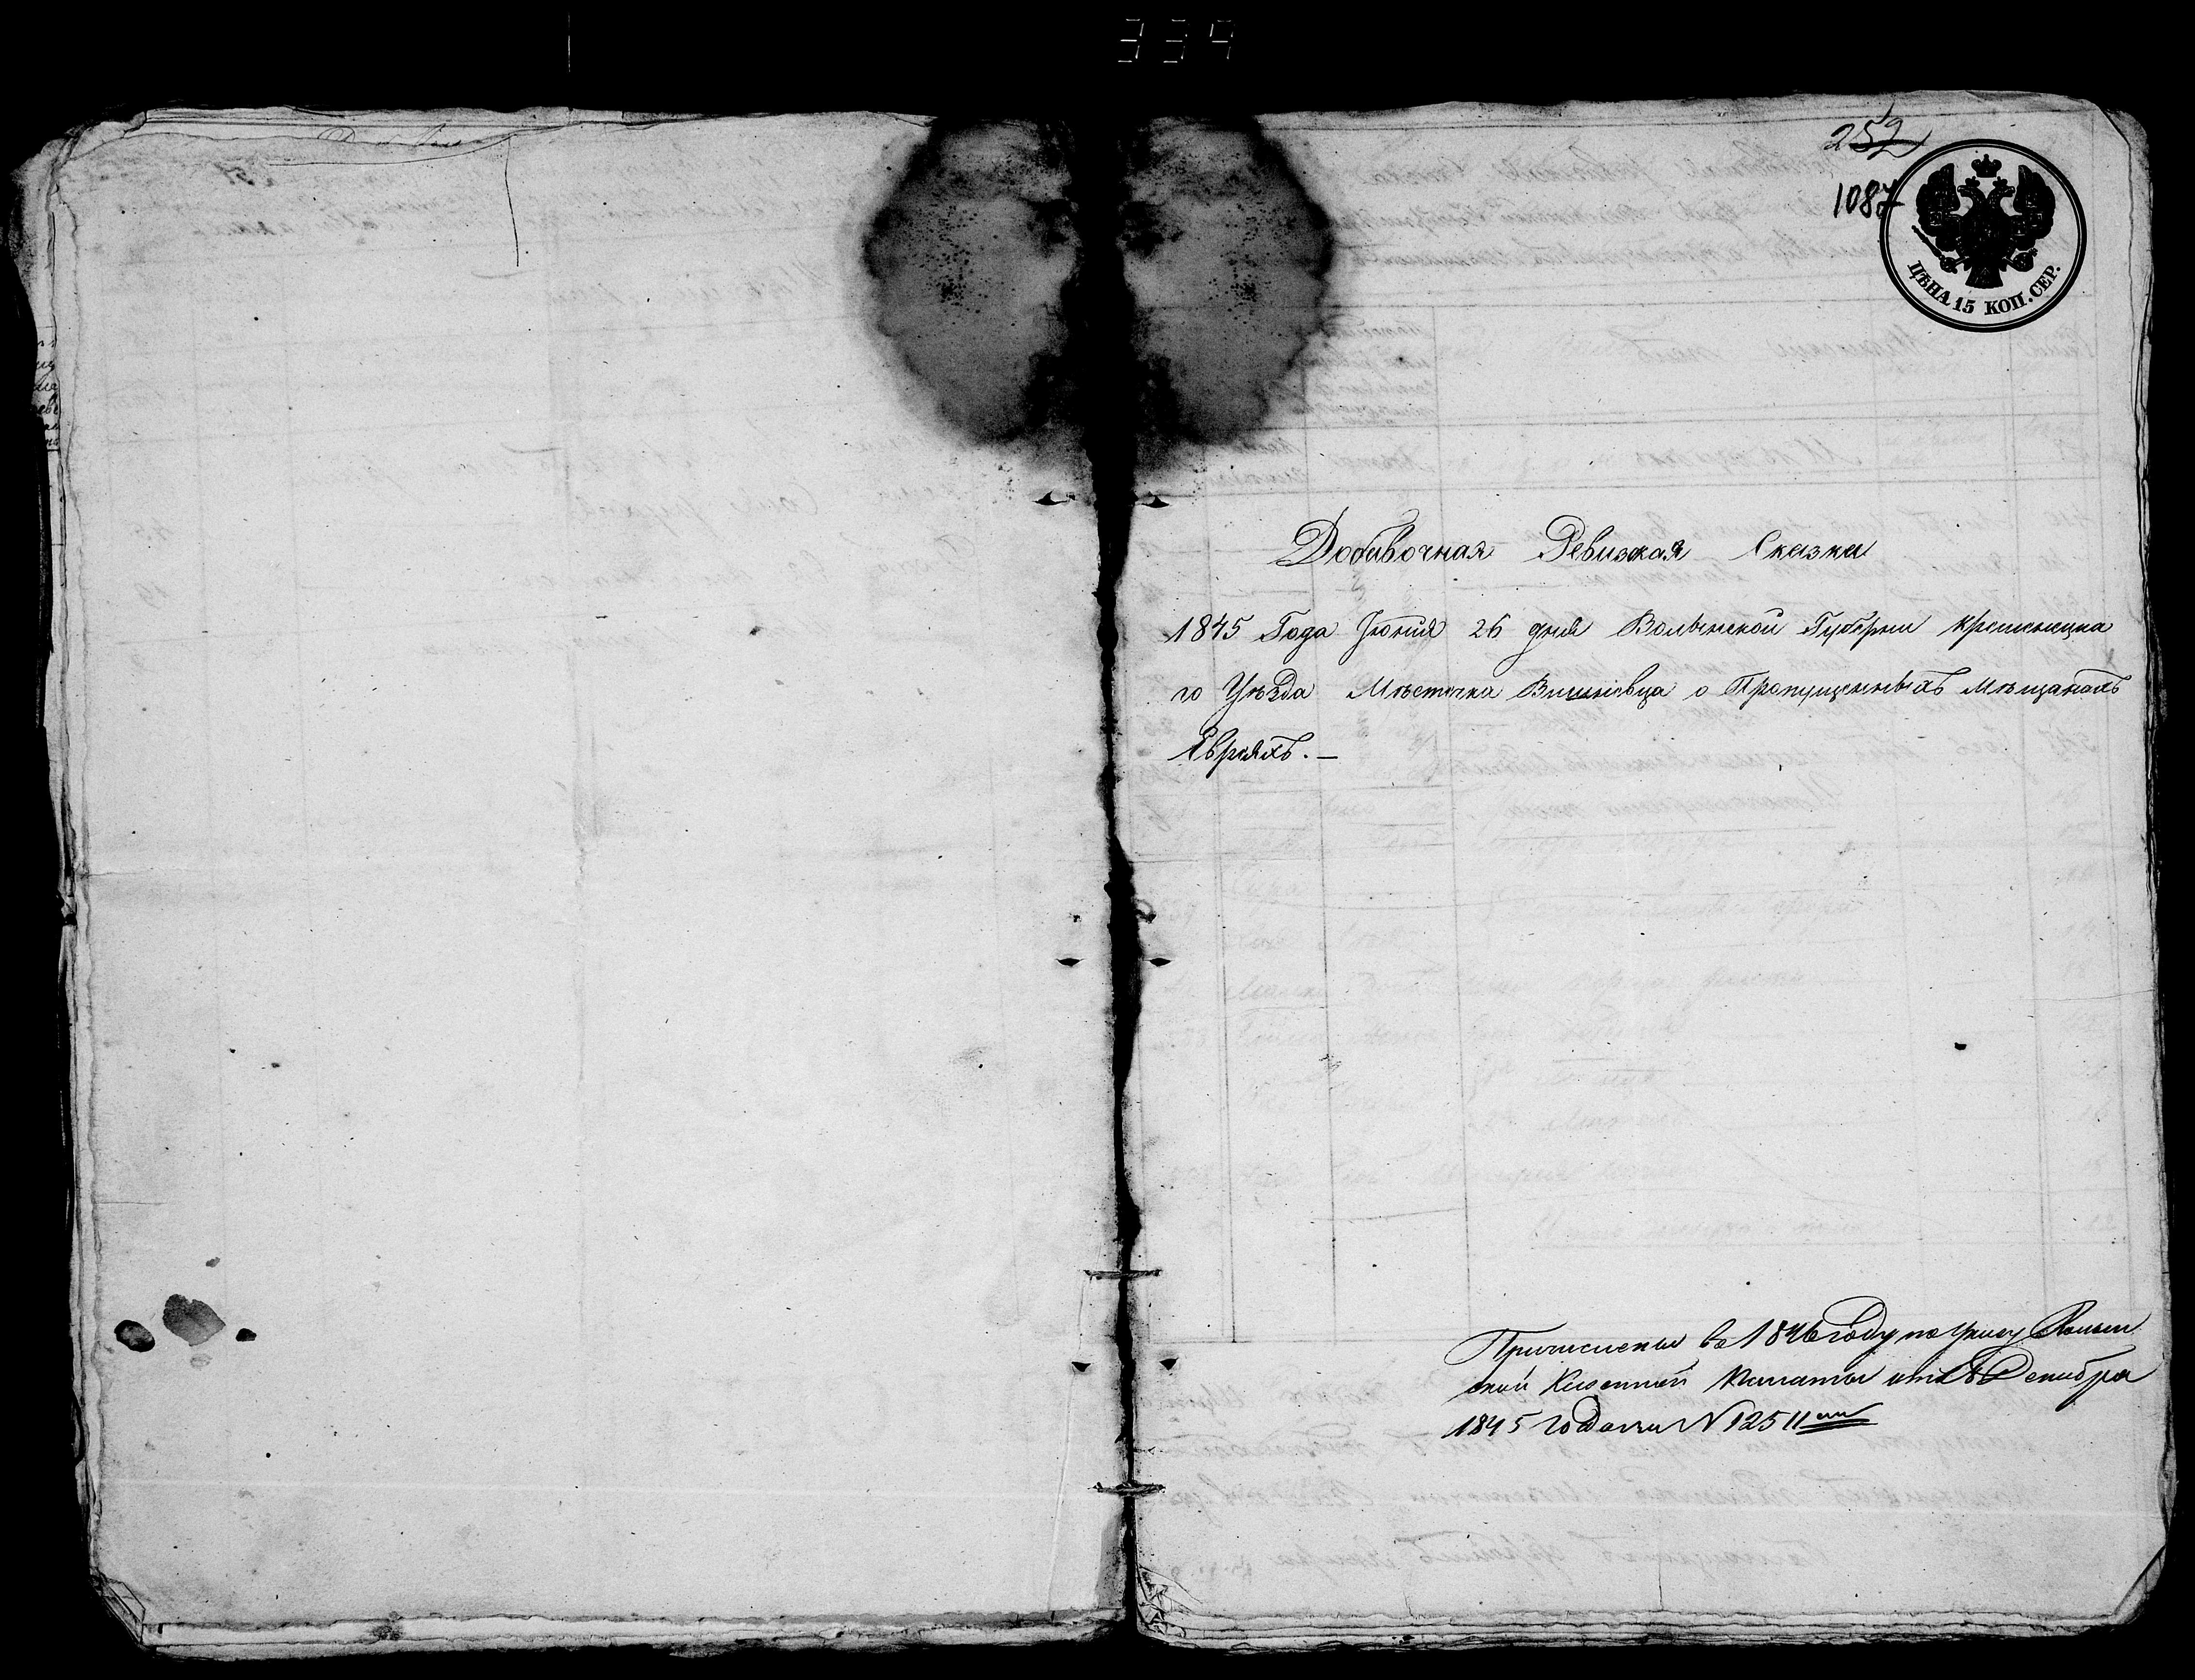 334
252
1087
ЦѢНА 15 КОП. СЕР.
Добавочная Ревизская Сказка
1845 Года Іюния 26 дня Волынской Губерніи Кременецка
го Уѣзда Мѣстечка Вишневца о Пропущенныхъ Мѣщанахъ
Евреяхъ. —
Причислены въ 1846 году по Указу Волын
ской Казенной Палаты отъ Декабря
1845 года за N 12511